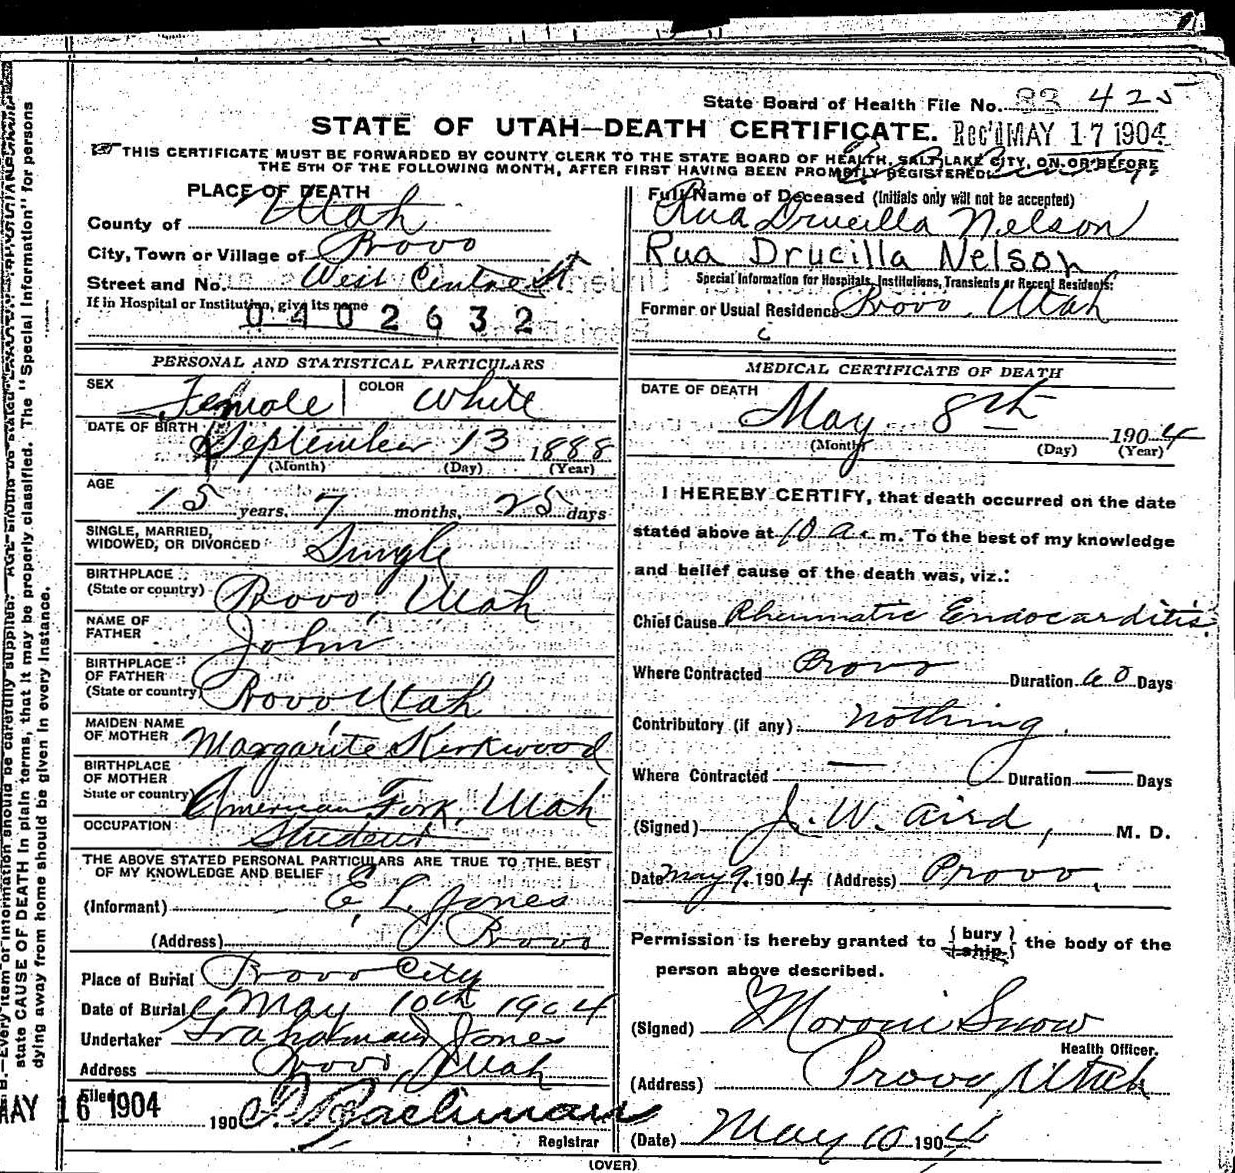 State Board of Health File No. 83 425
STATE OF UTAH—DEATH CERTIFICATE. Rec'd MAY 17 1904
THIS CERTIFICATE MUST BE FORWARDED BY COUNTY CLERK TO THE STATE BOARD OF HEALTH, SALT LAKE CITY, ON OR BEFORE
THE 5TH OF THE FOLLOWING MONTH, AFTER FIRST HAVING BEEN PROMPTLY REGISTERED.
PLACE OF DEATH
County of Utah
City, Town or Village of Provo
Street and No. West Centre St
If in Hospital or Institution, give its name
0402632
PERSONAL AND STATISTICAL PARTICULARS
SEX Female COLOR White
DATE OF BIRTH September 13 1888
(Month) (Day) (Year)
AGE
15 years, 7 months, 25 days
SINGLE, MARRIED,
WIDOWED, OR DIVORCED Single
BIRTHPLACE
(State or country) Provo, Utah
NAME OF
FATHER John
BIRTHPLACE
OF FATHER
(State or country) Provo Utah
MAIDEN NAME
OF MOTHER Margarite Kirkwood
BIRTHPLACE
OF MOTHER
State or country) American Fork, Utah
OCCUPATION Student
THE ABOVE STATED PERSONAL PARTICULARS ARE TRUE TO THE BEST
OF MY KNOWLEDGE AND BELIEF
(Informant) E. L. Jones
(Address) Provo
Place of Burial Provo City
Date of Burial May 10th 1904
Undertaker Graham and Jones
Address Provo, Utah
Filed MAY 16 1904 190
Registrar
Full Name of Deceased (Initials only will not be accepted)
Rua Drucilla Nelson
Rua Drucilla Nelson
Special Information for Hospitals, Institutions, Transients or Recent Residents:
Former or Usual Residence Provo, Utah
MEDICAL CERTIFICATE OF DEATH
DATE OF DEATH
May 8th 1904
(Month) (Day) (Year)
I HEREBY CERTIFY, that death occurred on the date
stated above at 10 a. m. To the best of my knowledge
and belief cause of the death was, viz.:
Chief Cause Rheumatic Endocarditis.
Where Contracted Provo Duration 60 Days
Contributory (if any) nothing.
Where Contracted — Duration — Days
(Signed) J. W. Aird, M. D.
Date May 9. 1904 (Address) Provo.
Permission is hereby granted to {bury / ship} the body of the
person above described.
(Signed) Moroni Snow
Health Officer.
(Address) Provo, Utah
(Date) May 10 1904
(OVER)
B.—Every item of information should be carefully supplied.
state CAUSE OF DEATH in plain terms, that it may be properly classified. The "Special Information" for persons
dying away from home should be given in every instance.